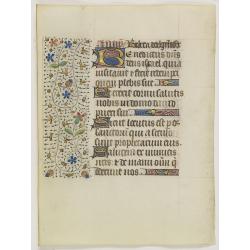 Benedictus dns
deus israel quia
uisitauit et fecit redemp
plebis sue
Et erexit cornu salutis
nobis in domo dauid
pueri sui
Sicut locutus est p os
sanctorum qui a seculo
prophetarum eius
Salutem ex inimicis
nris et de manu oim q
oderunt nos